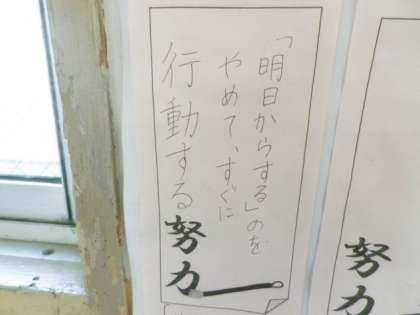 「明日からする」のを
やめて、すぐに
行動する努力
努力